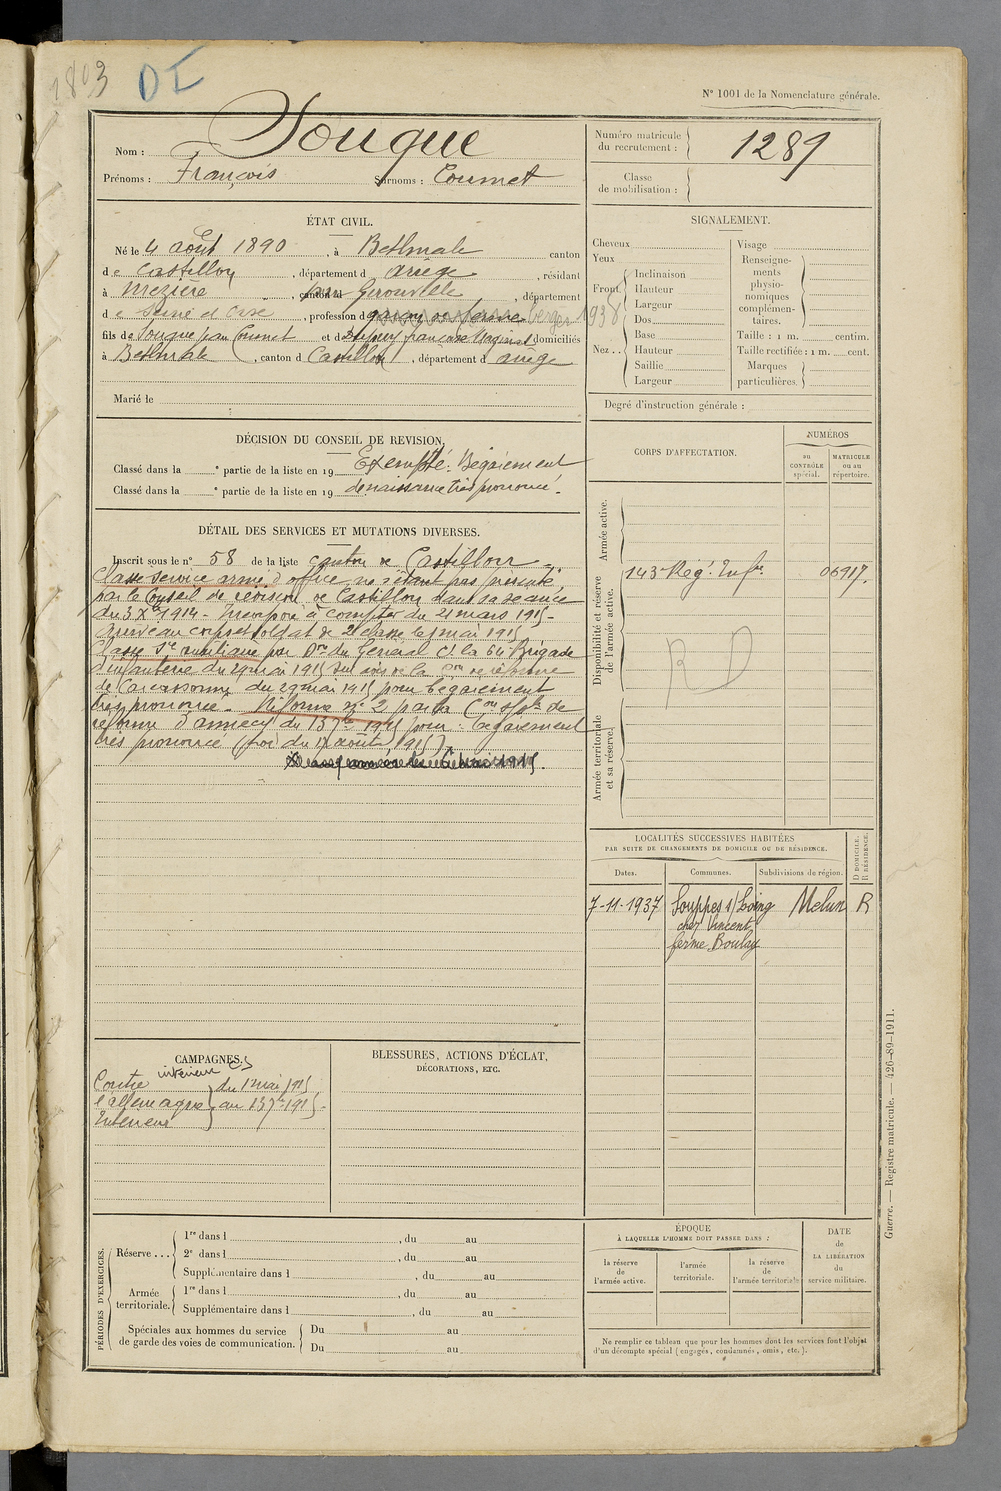 1803 DI
N° 1001 de la Nomenclature générale.
Nom : Souque
Prénoms : François Surnoms : Coumet
Numéro matricule du recrutement : 1289
Classe de mobilisation :
ÉTAT CIVIL.
Né le 4 août 1890, à Bethmale canton
de Castillon, département d Ariège, résidant
à Mézière, canton d par Gerouville, département
de Seine et Oise, profession d garçon de ferme berger 1938
fils de Souque jean Coumet et d françoise domiciliés
à Bethmale, canton d Castillon, département d ariège
Marié le
SIGNALEMENT.
Cheveux
Yeux
Front Inclinaison
Hauteur
Largeur
Nez Dos
Base
Hauteur
Saillie
Largeur
Visage
Renseignements physionomiques complémentaires.
Taille : 1 m. centim.
Taille rectifiée : 1 m. cent.
Marques particulières.
Degré d'instruction générale :
DÉCISION DU CONSEIL DE REVISION.
Classé dans la e partie de la liste en 19 Exempté. Bégaiement
Classé dans la e partie de la liste en 19 de naissance très prononcé.
DÉTAIL DES SERVICES ET MUTATIONS DIVERSES.
Inscrit sous le n° 58 de la liste canton de Castillon
Classé service armé d'office ne s'étant pas présenté
par le Conseil de révision de Castillon dans sa séance
du 3 Xbre 1914 - Incorporé à compter du 21 mars 1915 -
Arrivé au corps et soldat de 2e classe le 1 mai 1915
Classé Sce auxiliaire par Don du Général Ct la 64 Brigade
d'infanterie du 29 mai 1915 sur avis de la Con de réforme
de Carcassonne du 29 mai 1915 pour bégaiement
très prononcé - Réformé n° 2 par la Con de
réforme d'Annecy du 13 7bre 1915 pour : bégaiement
très prononcé (loi du 17 août 1915)
CORPS D'AFFECTATION.
NUMÉROS
au CONTRÔLE spécial.
MATRICULE ou au répertoire.
Armée active.
Disponibilité et réserve de l'armée active.
143e Regt Infie 06917.
RD
Armée territoriale et sa réserve.
LOCALITÉS SUCCESSIVES HABITÉES
PAR SUITE DE CHANGEMENTS DE DOMICILE OU DE RÉSIDENCE.
Dates. Communes. Subdivisions de région. D DOMICILE. R RÉSIDENCE.
7-11-1937 Souppes s/Loing Melun R
chez Vincent
ferme Boulay
CAMPAGNES.
intérieur CS
Contre du 1 mai 1915
l'allemagne au 13 7bre 1915-
Intérieur
BLESSURES, ACTIONS D'ÉCLAT,
DÉCORATIONS, ETC.
PÉRIODES D'EXERCICES.
Réserve ... 1re dans l , du au
2e dans l , du au
Supplémentaire dans l , du au
Armée territoriale. 1re dans l , du au
Supplémentaire dans l , du au
Spéciales aux hommes du service de garde des voies de communication. Du au
Du au
ÉPOQUE
À LAQUELLE L'HOMME DOIT PASSER DANS :
la réserve de l'armée active.
l'armée territoriale.
la réserve de l'armée territoriale
DATE de LA LIBÉRATION du service militaire.
Ne remplir ce tableau que pour les hommes dont les services font l'objet
d'un décompte spécial (engagés, condamnés, omis, etc.).
Guerre. — Registre matricule. — 426-89-1911.